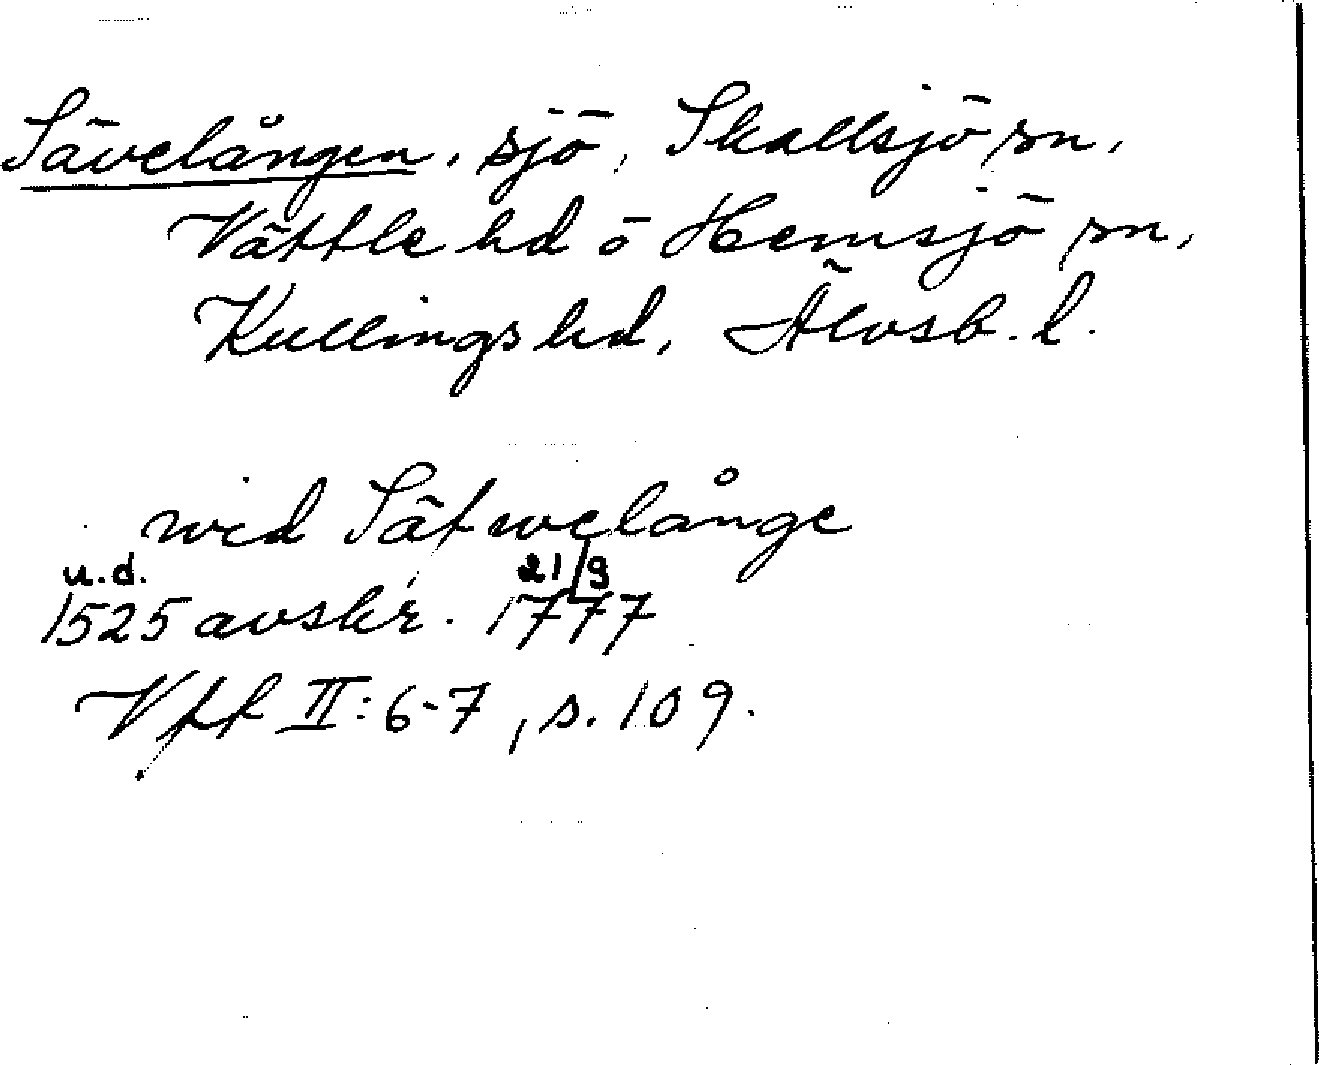 Sävelången, sjö, Skallsjö sn,
Vättle hd o Hemsjö sn,
Kullings hd, Älvsb. l.
wid Säfwelånge
u.d. 21/9
1525 avskr. 1777
Vff II: 6-7, s. 109.